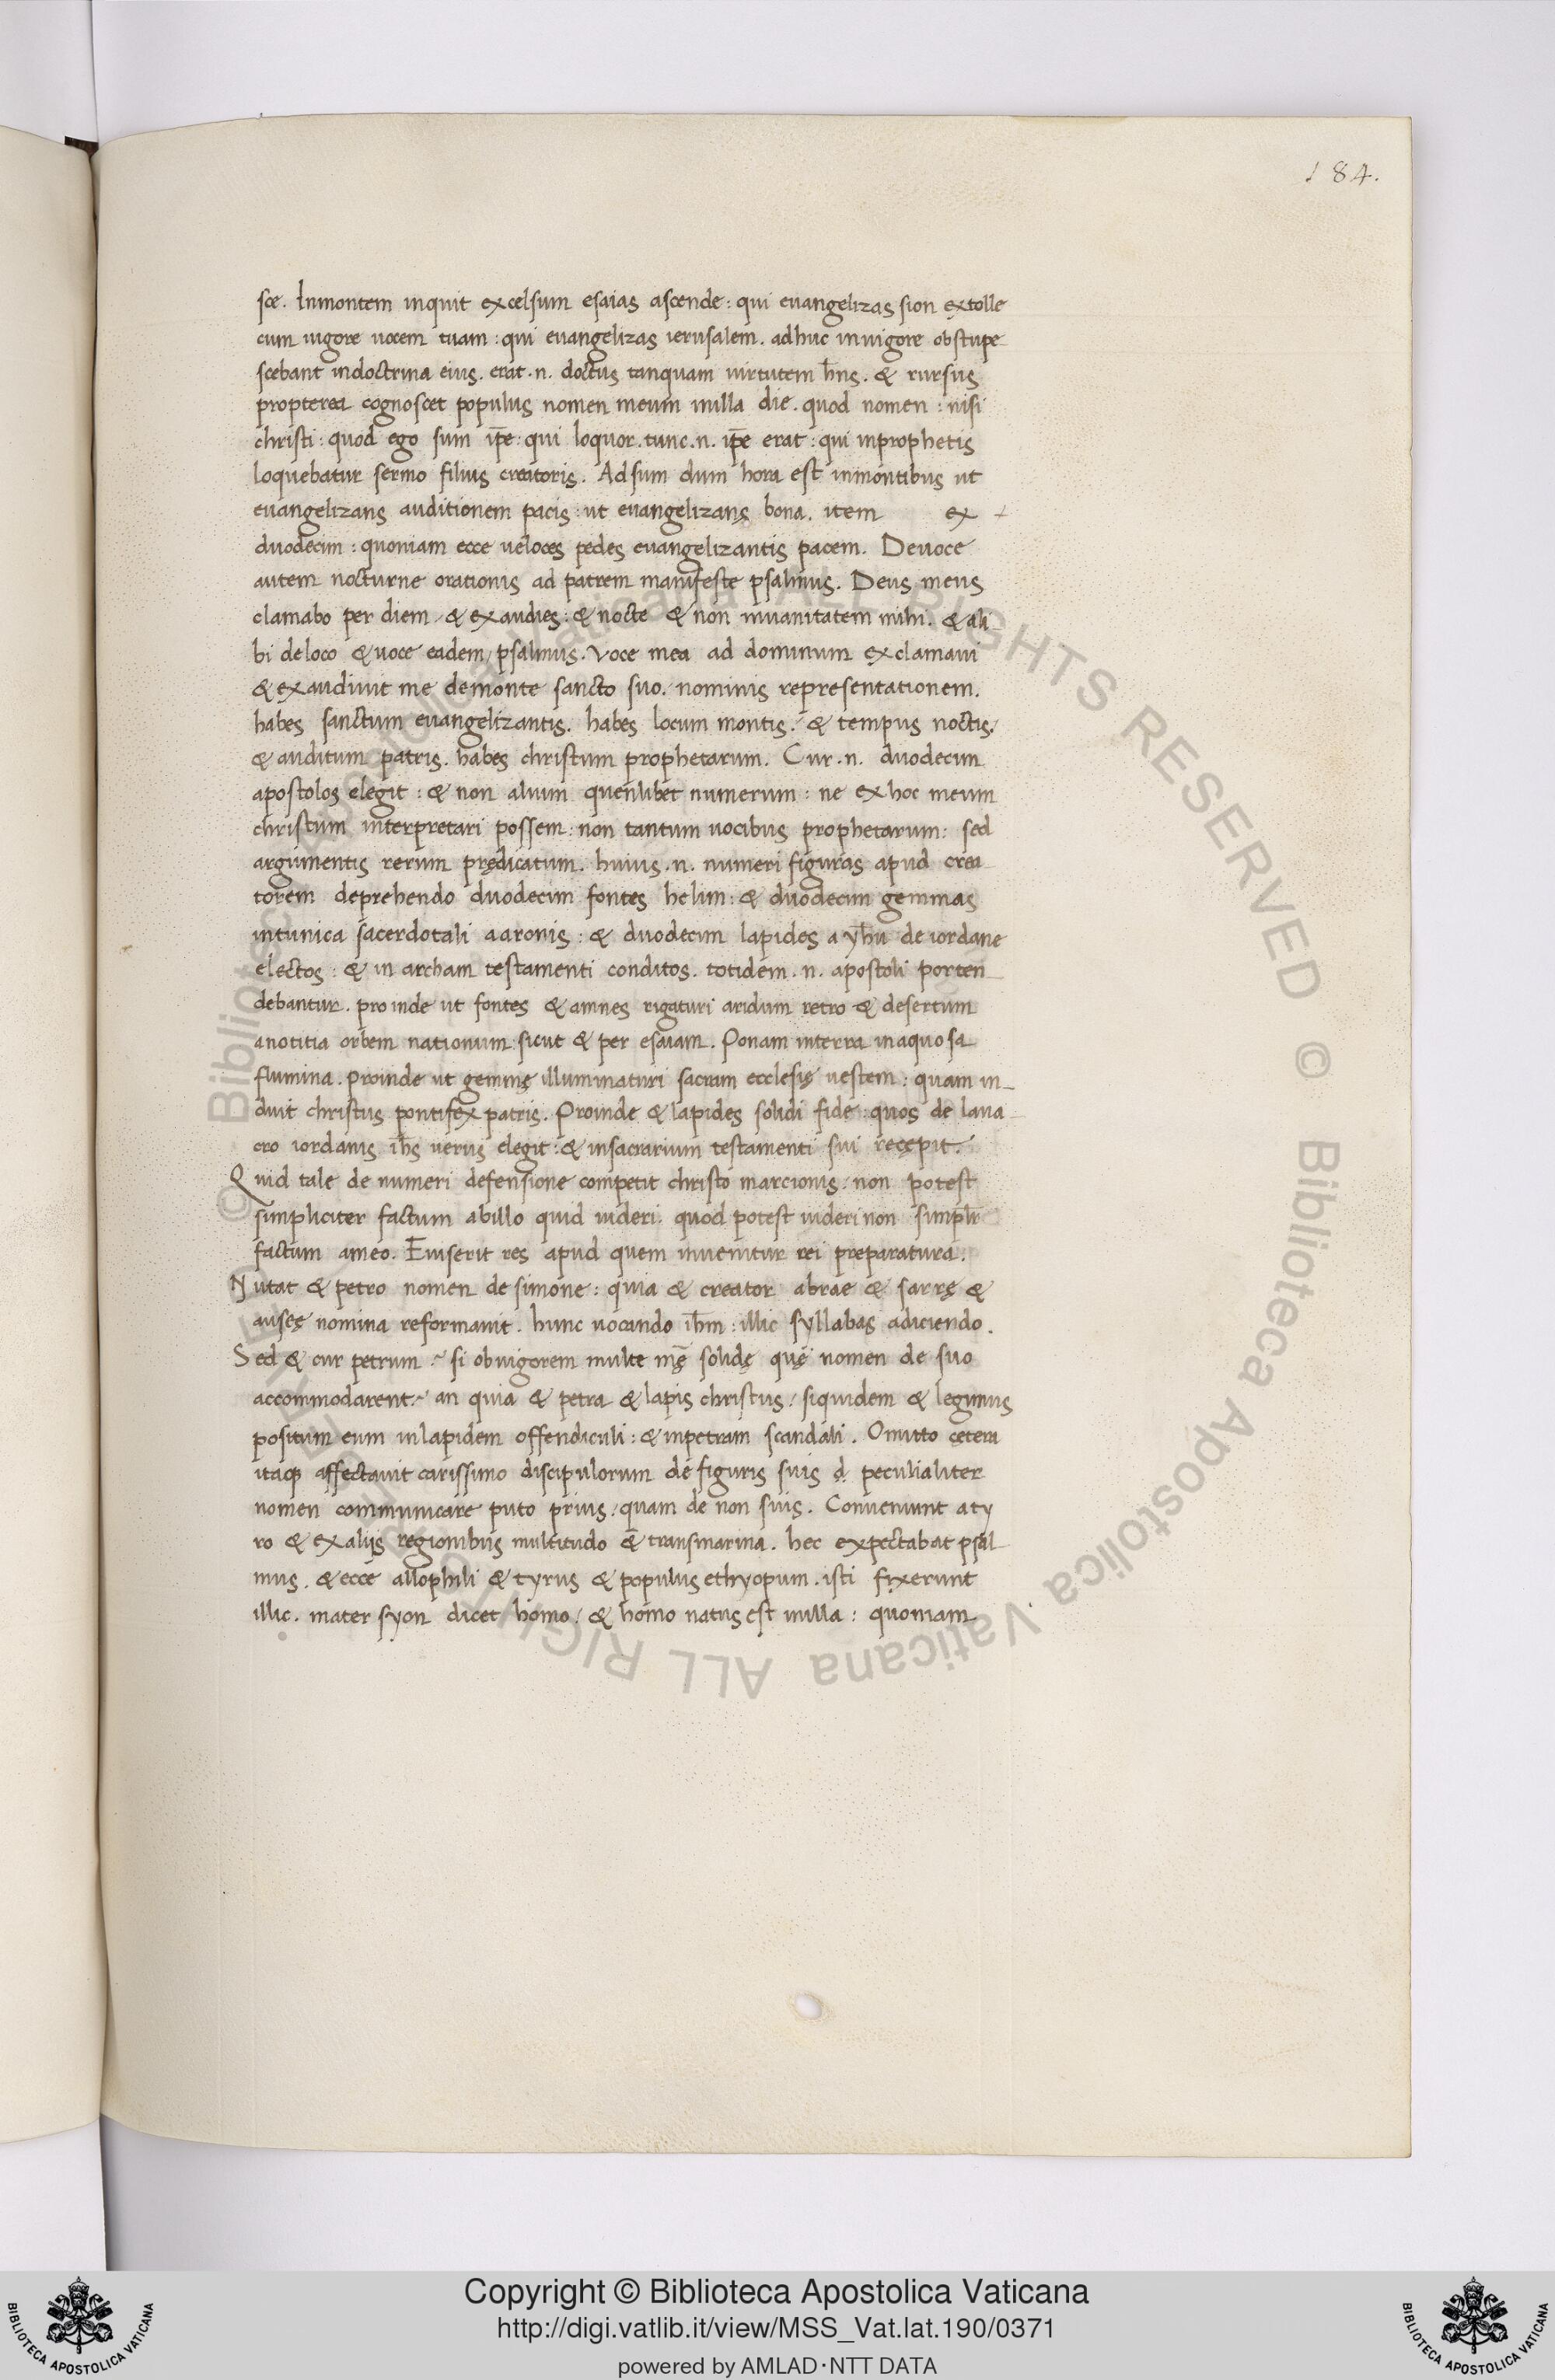 184.
sce. Inmontem inquit excelsum esaias ascende: qui euangelizas sion extolle
cum uigore uocem tuam: qui euangelizas ierusalem. adhuc inuigore obstupe
scebant indoctrina eius. erat .n. doctus tanquam uirtutem hn̄s. & rursus
propterea cognoscet populus nomen meum inilla die. quod nomen: nisi
christi: quod ego sum ip̄e: qui loquor. tunc .n. ip̄e erat: qui inprophetis
loquebatur sermo filius creatoris. Adsum dum hora est inmontibus ut
euangelizans auditionem pacis: ut euangelizans bona. item ex
duodecim: quoniam ecce ueloces pedes euangelizantis pacem. Deuoce
autem nocturne orationis ad patrem manifeste psalmus. Deus meus
clamabo per diem & exaudies: & nocte & non inuanitatem mihi. & ali
bi deloco & uoce eadem psalmus. Voce mea ad dominum exclamaui
& exaudiuit me demonte sancto suo. nominis representationem.
habes sanctum euangelizantis. habes locum montis. & tempus noctis.
& auditum patris. habes christum prophetarum. Cur .n. duodecim
apostolos elegit: & non alium quenlibet numerum: ne exhoc meum
christum interpretari possem: non tantum uocibus prophetarum: sed
argumentis rerum prędicatum. huius .n. numeri figuras apud crea
torem deprehendo duodecim fontes helim: & duodecim gemmas
intunica sacerdotali aaronis: & duodecim lapides a yh̄u de iordane
electos: & in archam testamenti conditos. totidem .n. apostoli porten
debantur. proinde ut fontes & amnes rigaturi aridum retro & desertum
anotitia orbem nationum: sicut & per esaiam. Ponam interra inaquosa
flumina. Proinde ut gemmę illuminaturi sacram ecclesię uestem: quam in
duit christus pontifex patris. Proinde & lapides solidi fide: quos de laua
cro iordanis ih̄s uerus elegit: & insacrarium testamenti sui recepit.
Quid tale de numeri defensione competit christo marcionis. non potest
simpliciter factum abillo quid uideri. quod potest uideri non simplr̄
factum ameo. Eiuserit res apud quem inuenitur rei preparatura.
Mutat & petro nomen de simone: quia & creator abrae & sarrę &
ausęę nomina reformauit. hunc uocando ih̄m: illic syllabas adiciendo.
Sed & cur petrum. si obuigorem multe solidę quę nomen de suo
accommodarent. an quia & petra & lapis christus. siquidem & legimus
positum eum inlapidem offendiculi: & inpetram scandali. Omitto cętera
itaq affectauit carissimo discipulorum de figuris suis peculialiter
nomen communicare puto prius. quam de non suis. Conueniunt aty
ro & exaliis regionibus multitudo & transmarina. hec expectabat psal
mus. & ecce allophili & tyrus & populus ethyopum. isti fixerunt
illic. mater syon dicet homo. & homo natus est inilla: quoniam
© Biblioteca Apostolica Vaticana ALL RIGHTS RESERVED
© Biblioteca Apostolica Vaticana ALL RIGHTS RESERVED
Copyright © Biblioteca Apostolica Vaticana
http://digi.vatlib.it/view/MSS_Vat.lat.190/0371
powered by AMLAD·NTT DATA
BIBLIOTECA APOSTOLICA VATICANA
BIBLIOTECA APOSTOLICA VATICANA